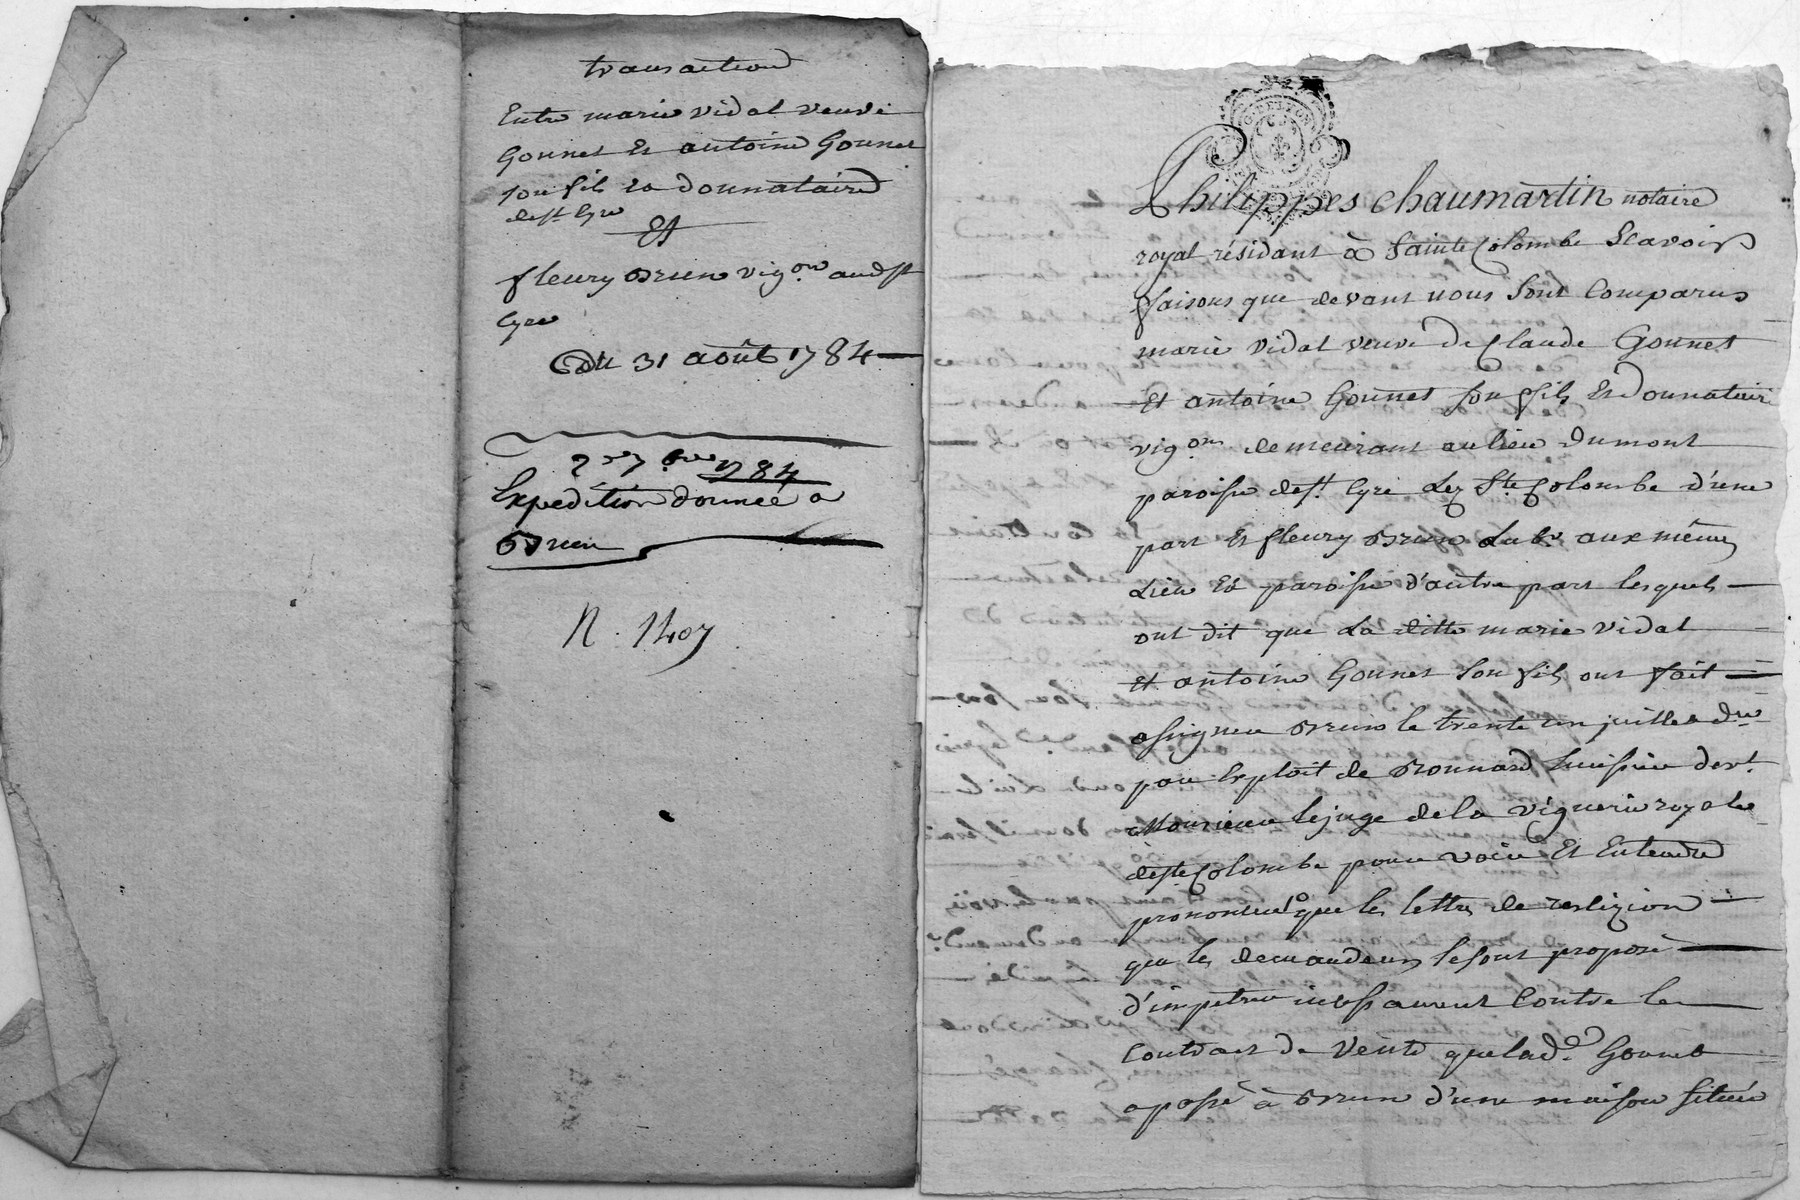 transaction
Entre marie vidal veuve
Gonnet Et antoine Gonnet
son fils Et donnataire
de st Cyre
Et
fleury Brun vigon audst
Cyre
Du 31 août 1784
7bre 1784
Expedition donneé a
Brun
N. 1407
Philippes Chaumartin notaire
royal résidant à Sainte Colombe Scavoir
faisons que devant nous sont Comparus
marie vidal veuve de Claude Gonnet
Et antoine Gonnet son fils Et donnataire
vigon demeurant au lieu du mont
paroisse de st. Cyre Lez Ste Colombe d'une
part Et fleury Brun Labr aux mêmes
Lieu Et paroisse d'autre part lesquels
ont dit que La ditte marie vidal
Et antoine Gonnet son fils ont fait
assigner Brun le trente un juillet dr
par Exploit de Bonnard huissier devt.
Monsieur le juge de la viguerie royale
de ste Colombe pour voir Et Entendre
prononcer que les lettres de
que les demandeurs se sont proposé
d'impetrer incessament Contre le
Contract de vente que lade. Gonnet
a passé à Brun d'une maison située